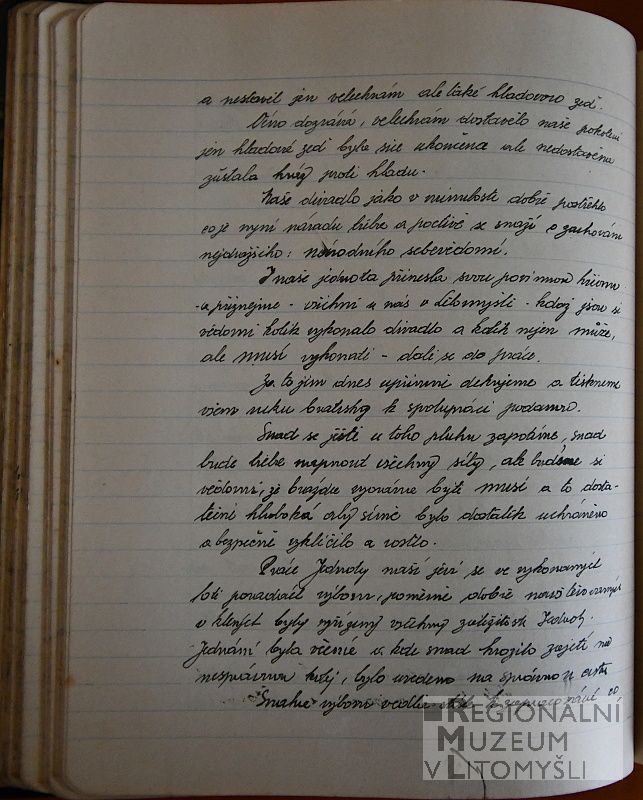 a nestavěl jen velechrám ale také hladovou zeď.
Víno dozrává, velechrám dostavělo naše pokolení
jen hladové zedi byla sice ukončena ale nedostavěna
zůstala hráz proti hladu.
Naše divadlo jako v minulosti dobře postřehlo
co je nyní národu třeba a poctivě se snaží o zachování
nejdražšího: národního sebevědomí.
I naše jednota přinesla svou povinnou hřivnu
a přiznejme - všichni u nás v Litomyšli - kdož jsou si
vědomi kolik vykonalo divadlo a kolik nejen může,
ale musí vykonati - dali se do práce.
Za to jim dnes upřímně děkujeme a tiskneme
všem ruku bratrsky k spolupráci podanou.
Snad se ještě u toho pluhu zapotíme, snad
bude třeba napnout všechny síly, ale buďme si
vědomi, že brázda vyorána býti musí a to dosta-
tečně hluboká aby símě bylo dostatek uchráněno
a bezpečně vyklíčilo a vzrostlo.
Práce Jednoty naší jeví se ve vykonaných
schůzí výboru, poměrně dobře navštěvovaných
v kterých byly vyřízeny všechny záležitosti Jednoty.
Jednání byla věcná a kde snad hrozilo zajetí na
nesprávnou kolej, bylo uvedeno na správnou cestu
Snahou výboru
REGIONÁLNÍ
MUZEUM
V LITOMYŠLI